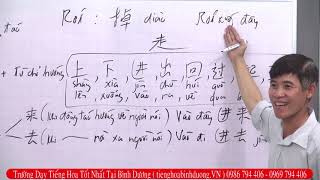 tai Rơi : 掉 diào Rơi xuống đây
走
+ Từ chỉ hướng (上, 下, 进, 出, 回, 过, 起
shàng xià jìn chū huí guò
lên xuống vào ra về qua
来 (mọi động tác hướng về người nói) Vào đây (进来
去 (mọi — ra xa người nói) Vào đi (进去 jìn
Trường Dạy Tiếng Hoa Tốt Nhất Tại Bình Dương ( tienghoabinhduong.VN ) 0986 794 406 - 0969 794 406